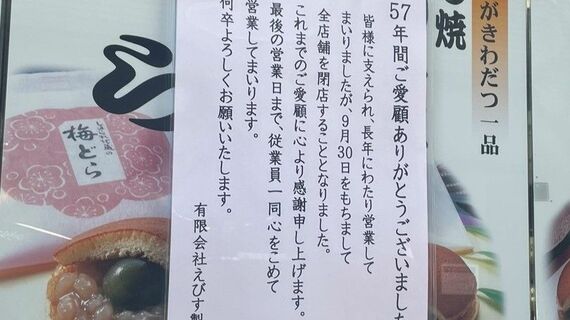 57年間ご愛顧ありがとうございました
皆様に支えられ、長年にわたり営業して
まいりましたが9月30日をもちまして
全店舗を閉店することとなりました。
これまでのご愛顧に心より感謝申し上げます。
最後の営業日まで、従業員一同心をこめて
営業してまいります。
何卒よろしくお願いいたします。
有限会社えびす製
がきわだつ一品
焼
梅どら